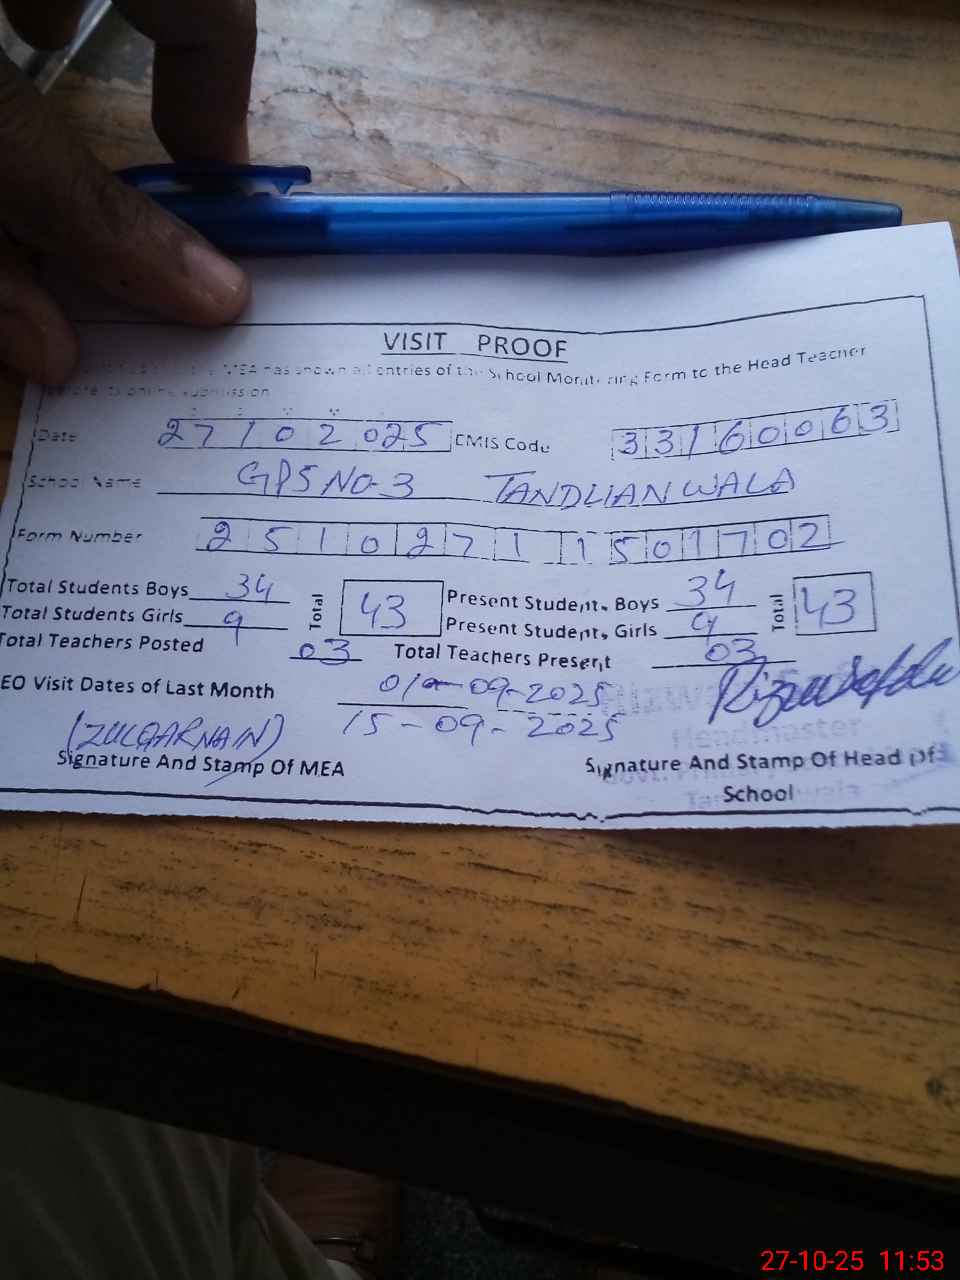 VISIT PROOF
MEA has shown all entries of the School Monitoring Form to the Head Teacher
before its online submission
Date 27102025 EMIS Code 33160063
School Name GPS NO-3 TANDLIANWALA
Form Number 25102711501702
Total Students Boys 34 Total 43 Present Student, Boys 34 Total 43
Total Students Girls 9 Present Student, Girls 9
Total Teachers Posted 03 Total Teachers Present 03
EO Visit Dates of Last Month 01-09-2025
15-09-2025
(ZULQARNAIN)
Headmaster
Signature And Stamp Of MEA Signature And Stamp Of Head Of
School
27-10-25 11:53